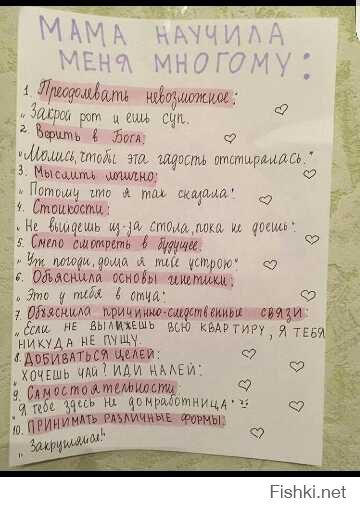 МАМА НАУЧИЛА
МЕНЯ МНОГОМУ:
1. Преодолевать невозможное:
„Закрой рот и ешь суп.
2. Верить в Бога:
„Молись, чтобы эта гадость отстиралась."
3. Мыслить логично:
„Потому что я так сказала".
4. Стойкости:
„Не выйдешь из-за стола, пока не доешь".
5. Смело смотреть в будущее:
„Уж погоди, дома я тебе устрою"
6. Объяснила основы генетики:
„Это у тебя в отца".
7. Объяснила причинно-следственные связи:
„Если не вылижешь всю квартиру, я тебя
никуда не пущу.
8. ДОБИВАТЬСЯ ЦЕЛЕЙ:
„ХОЧЕШЬ ЧАЙ? ИДИ НАЛЕЙ".
9. САМОСТОЯТЕЛЬНОСТИ:
„Я тебе здесь не домработница"
10. ПРИНИМАТЬ РАЗЛИЧНЫЕ ФОРМЫ:
„Закругляйся!"
Fishki.net